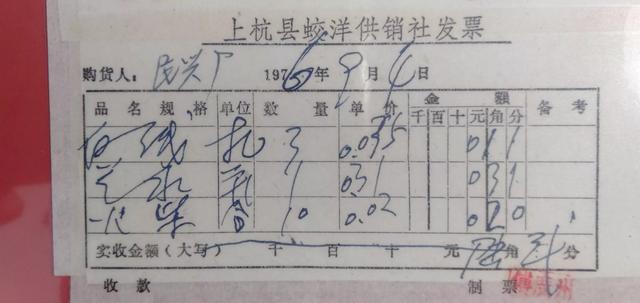 上杭县蛟洋供销社发票
购货人：民兴厂 1976年9月4日
品名规格 单位 数量 单价 金额 备考
千 百 十 元 角 分
白线 扎 3 0.035 0 1 1
兰水 瓶 1 0.31 0 3 1
火柴 合 10 0.02 0 2 0
实收金额（大写） 千 百 十 元 陆角 贰分
收款 制票